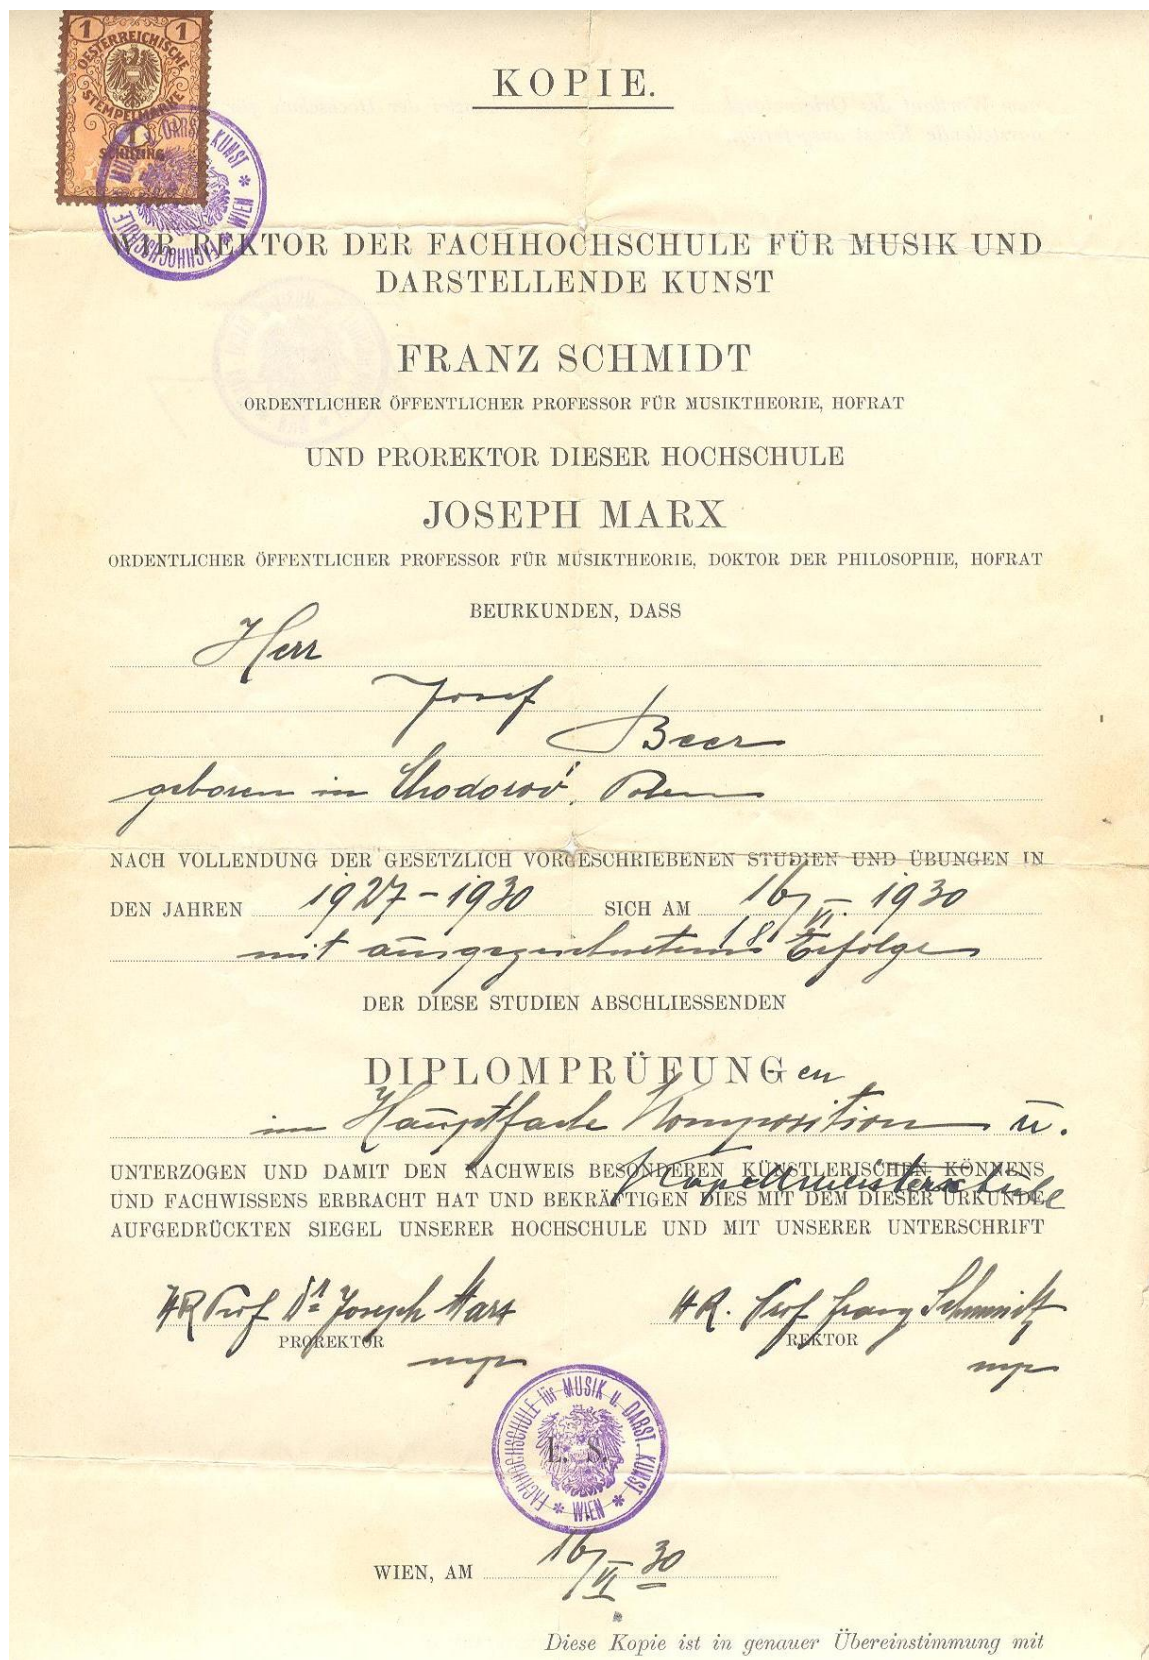 1 1
OESTERREICHISCHE
STEMPELMARKE
1
SCHILLING
FACHHOCHSCHULE für MUSIK u. DARST. KUNST * WIEN *
KOPIE.
WIR REKTOR DER FACHHOCHSCHULE FÜR MUSIK UND
DARSTELLENDE KUNST
FRANZ SCHMIDT
ORDENTLICHER ÖFFENTLICHER PROFESSOR FÜR MUSIKTHEORIE, HOFRAT
UND PROREKTOR DIESER HOCHSCHULE
JOSEPH MARX
ORDENTLICHER ÖFFENTLICHER PROFESSOR FÜR MUSIKTHEORIE, DOKTOR DER PHILOSOPHIE, HOFRAT
BEURKUNDEN, DASS
Herr
Josef
Beer
geboren in Chodorów, Polen
NACH VOLLENDUNG DER GESETZLICH VORGESCHRIEBENEN STUDIEN UND ÜBUNGEN IN
DEN JAHREN 1927-1930 SICH AM 16/VI. 1930
mit ausgezeichnetem Erfolge
DER DIESE STUDIEN ABSCHLIESSENDEN
DIPLOMPRÜFUNGen
im Hauptfache Komposition u.
Kapellmeisterschule
UNTERZOGEN UND DAMIT DEN NACHWEIS BESONDEREN KÜNSTLERISCHEN KÖNNENS
UND FACHWISSENS ERBRACHT HAT UND BEKRÄFTIGEN DIES MIT DEM DIESER URKUNDE
AUFGEDRÜCKTEN SIEGEL UNSERER HOCHSCHULE UND MIT UNSERER UNTERSCHRIFT
HR Prof Dr Joseph Marx HR. Prof Franz Schmidt
PROREKTOR REKTOR
mp mp
FACHHOCHSCHULE für MUSIK u. DARST. KUNST * WIEN *
L. S.
WIEN, AM 16/VI 30
Diese Kopie ist in genauer Übereinstimmung mit